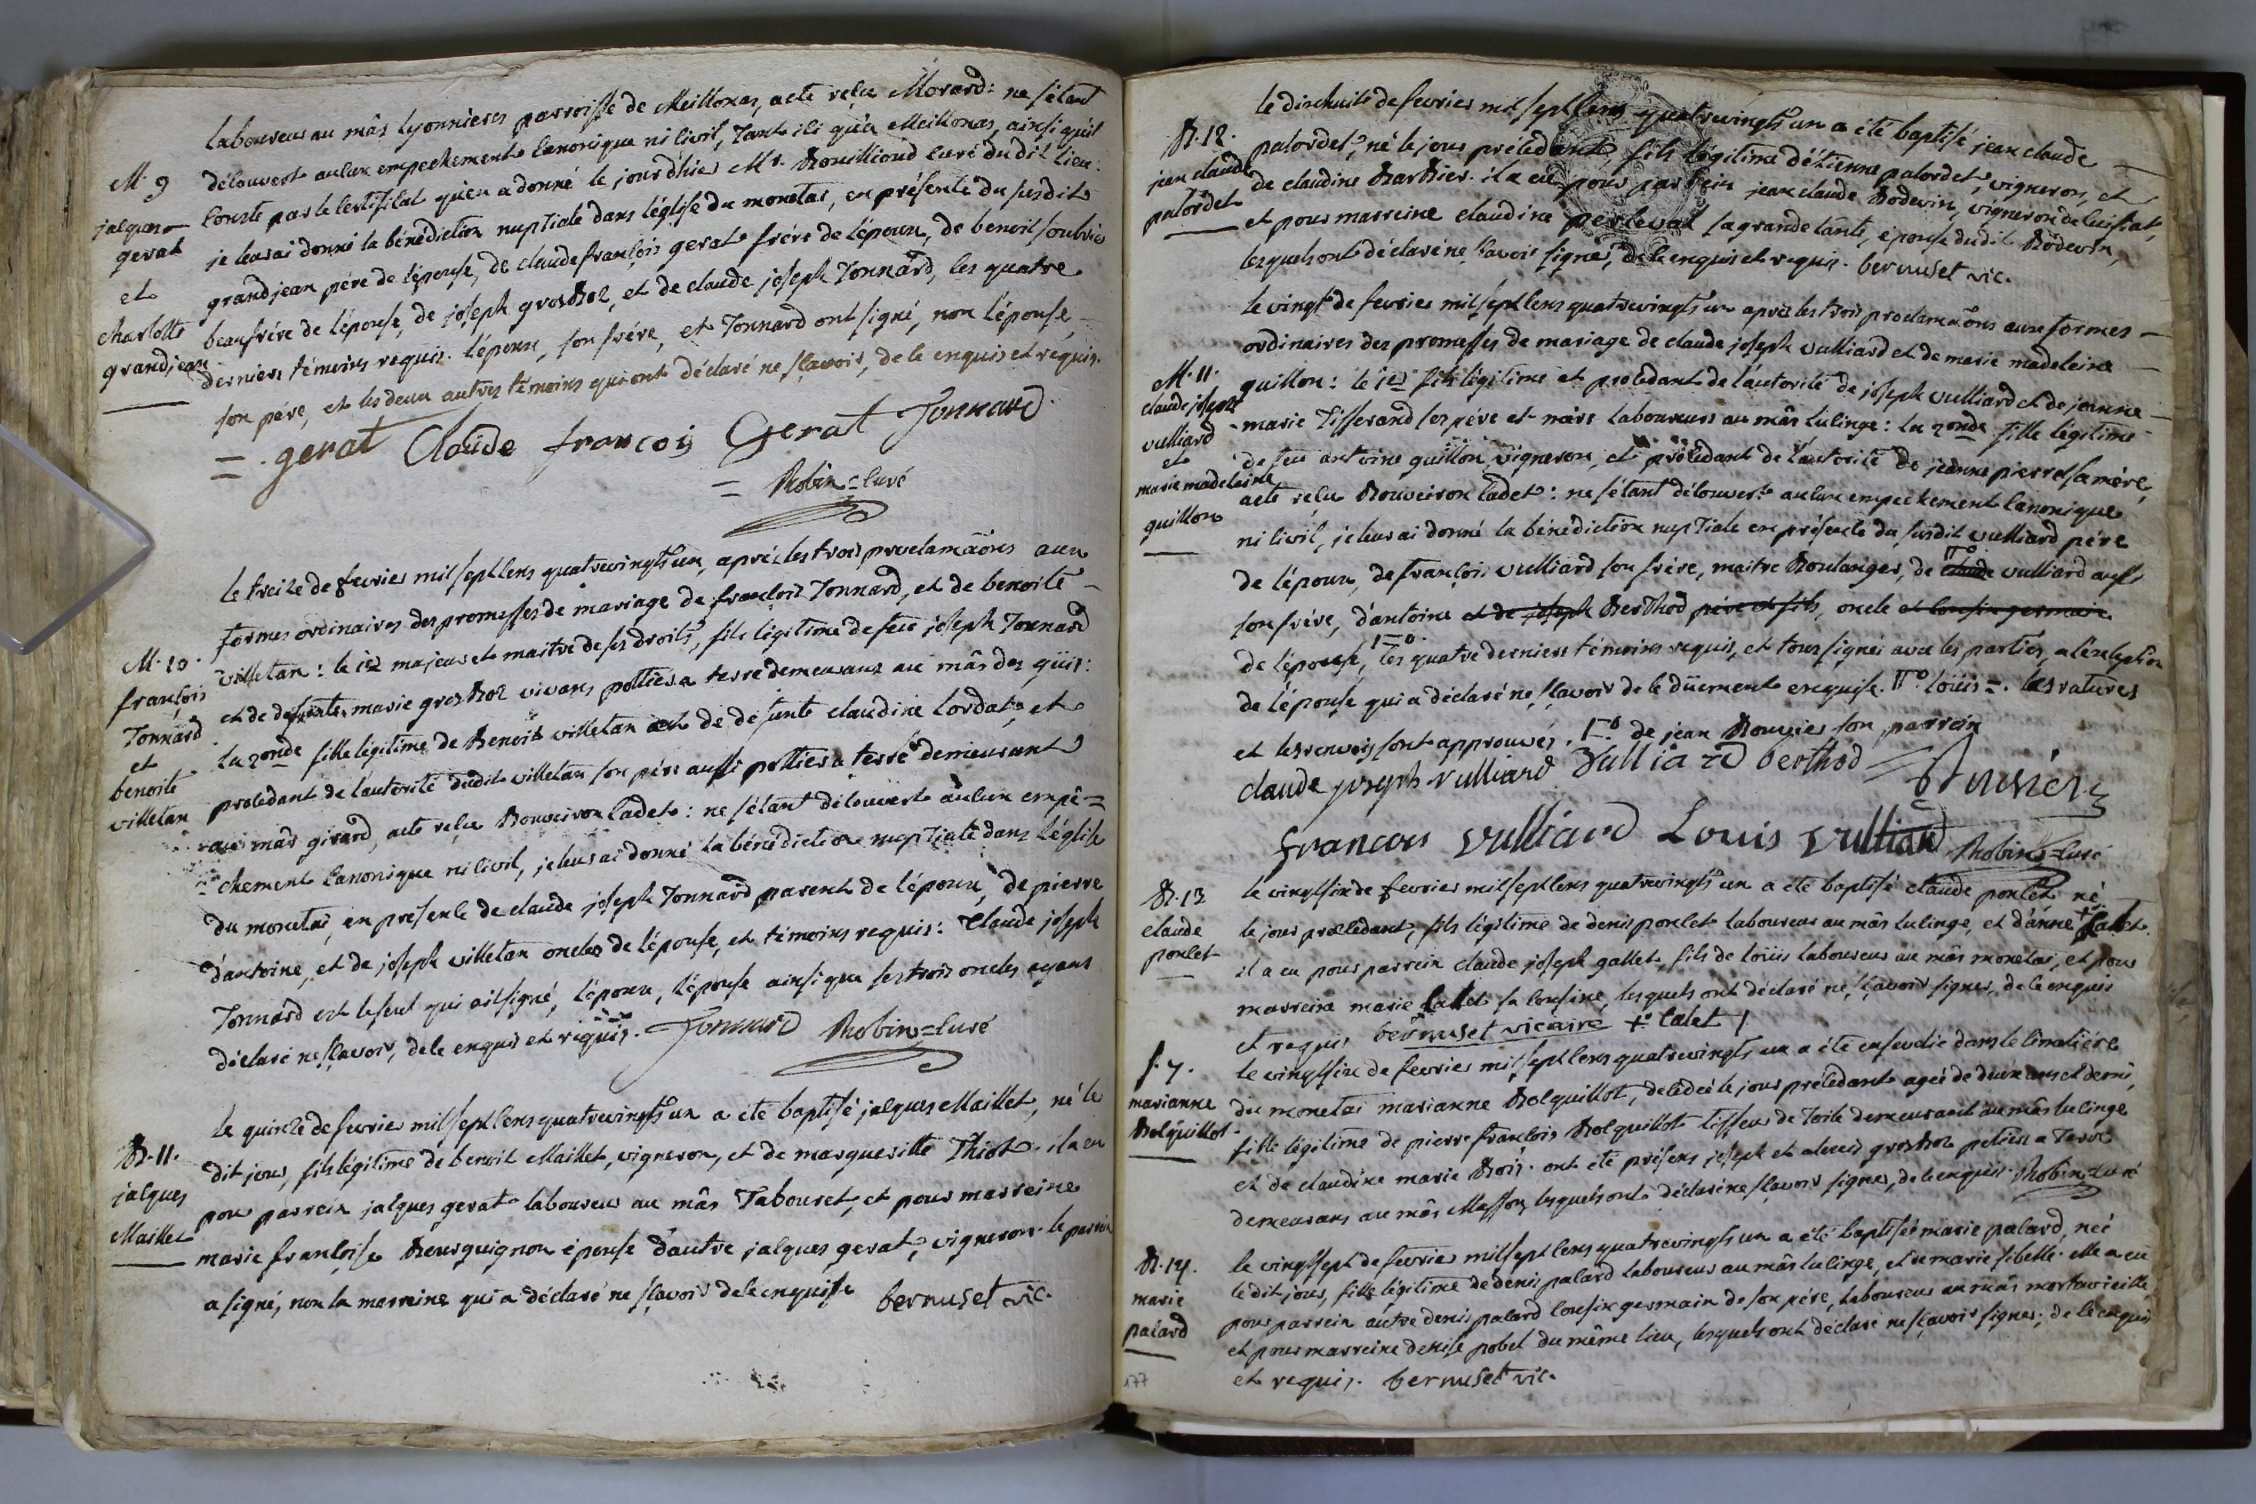 laboureur au mâs lyonnieres parroisse de Meillonas, acte reçu Morard: ne s'étant
M. 9
jacques
gerat
et
charlotte
grandjean
découvert aucun empechement canonique ni civil, tant ici qu'à Meillonas, ainsi qu'il
conste par le certificat qu'en a donné le jour d'hier Mr. Rouillioud curé du dit lieu:
je leur ai donné la bénédiction nuptiale dans l'église du monetai, en présence du susdit
grandjean pére de l'épouse, de claude françois gerat frére de l'époux, de benoit soubrier
beaufrére de l'épouse, de joseph grosboz, et de claude joseph Tonnard, les quatre
derniers témoins requis. l'époux, son frére, et Tonnard ont signé, non l'épouse,
son pére, et les deux autres témoins qui ont déclaré ne sçavoir, de ce enquis et requis.
= gerat Claude francois Gerat Tonnard
= Robin = curé
M. 10.
françois
Tonnard
et
benoite
villetan
le treize de fevrier mil sept cens quatrevingts un, aprés les trois proclamãons aux
formes ordinaires des promesses de mariage de françois Tonnard, et de benoite
villetan: le 1er majeur et maitre de ses droits, fils légitime de feu joseph Tonnard
et de defunte marie grosboz vivans pottiers a terre demeurans au mâs des güis:
la 2onde fille légitime de Benoit villetan et de defunte claudine Cordat, et
procedant de l'autorité dudit villetan son pére aussi pottier a terre demeurant
au mâs girard, acte reçu Bouveiron cadet: ne s'étant découvert aucun empê=
chement canonique ni civil, je leur ai donné la bénédiction nuptiale dans l'église
du monetai, en présence de claude joseph Tonnard parent de l'époux, de pierre
d'antoine, et de joseph villetan oncles de l'épouse, et témoins requis: claude joseph
Tonnard est le seul qui ait signé, l'époux, l'épouse ainsi que ses trois oncles ayans
déclaré ne sçavoir, de ce enquis et requis. Tonnard Robin = curé
B. 11.
jacques
Maillet
le quinze de fevrier mil sept cens quatrevingts un a été baptisé jacques Maillet, né le
dit jour, fils légitime de benoit Maillet, vigneron, et de marguerite Thiot. il a eu
pour parrein jacques gerat laboureur au mâs Tabouret, et pour marreine
marie françoise Bourguignon épouse d'autre jacques gerat, vigneron. le parrein
a signé, non la marreine qui a déclaré ne sçavoir de ce enquise bernuset vic.
B. 12.
jean claude
palordet
le dixhuit de fevrier mil sept cens quatrevingts un a été baptisé jean claude
palordet, né le jour précédant, fils légitime d'étienne palordet, vigneron, et
de claudine Barbier. il a eu pour parrein jean claude Bodevin, vigneron de cuisiat,
et pour marreine claudine perceval sa grande tante, épouse dudit Bodevin,
lesquels ont déclaré ne sçavoir signer, de ce enquis et requis. bernuset vic.
M. 11.
claude joseph
vulliard
et
marie madeleine
guillon
le vingt de fevrier mil sept cens quatrevingts un aprés les trois proclamãons aux formes
ordinaires des promesses de mariage de claude joseph vulliard et de marie madeleine
guillon: le 1er fils légitime et procedant de l'autorité de joseph vulliard et de jeanne
marie Tisserand ses pére et mére laboureurs au mâs lulinge: la 2onde fille légitime
de feu antoine guillon vigneron, et procedant de l'autorité de jeanne pierre sa mére,
acte reçu Bouveiron cadet: ne s'étant découvert aucun empechement canonique
ni civil, je leur ai donné la bénédiction nuptiale en présence du susdit vulliard pére
de l'époux, de françois vulliard son frére, maitre Boulanger, de claude IIo. vulliard aussi
son frére, d'antoine et de joseph Berthod pére et fils, oncle et cousin germain
de l'épouse, Io. les quatre derniers témoins requis, et tous signés avec les parties, a l'exception
de l'épouse qui a déclaré ne sçavoir de ce düement enquise. IIo. loüis =. les ratures
et les renvois sont approuvés. Io. de jean Bouvier son parrein
claude joseph vulliard Vulliard berthod Bouvier
francois vulliard Louis vulliard Robin = curé
B. 13
claude
poncet
le vingtsix de fevrier mil sept cens quatrevingts un a été baptisé claude poncet né
le jour précédant, fils légitime de denis poncet laboureur au mâs lulinge, et d'anne +
il a eu pour parrein claude joseph gallet, fils de loüis laboureur au mâs monetai, et pour
marreine marie Calet sa cousine, lesquels ont déclaré ne sçavoir signer, de ce enquis
et requis bernuset vicaire + calet /
S. 7.
marianne
Bolquillot
le vingtsix de fevrier mil sept cens quatrevingts un a été ensevelie dans le cimetiére
du monetai marianne Bolquillot, décédée le jour précédant agée de deux ans et demi,
fille légitime de pierre françois Bolquillot tisseur de toile demeurant au mâs lulinge
et de claudine marie Bois. ont été présens joseph et grosboz potiers a terre
demeurans au mâs Masson, lesquels ont déclaré ne sçavoir signer, de ce enquis. Robin curé
B. 14.
marie
palard
le vingtsept de fevrier mil sept cens quatrevingts un a été baptisée marie palard, née
ledit jour, fille légitime de denis palard laboureur au mâs lulinge, et de marie sibelle. elle a eu
pour parrein autre denis palard cousin germain de son pére, laboureur au mâs
et pour marreine denise pobel du même lieu, lesquels ont déclaré ne sçavoir signer, de ce enquis
et requis. bernuset vic.
177